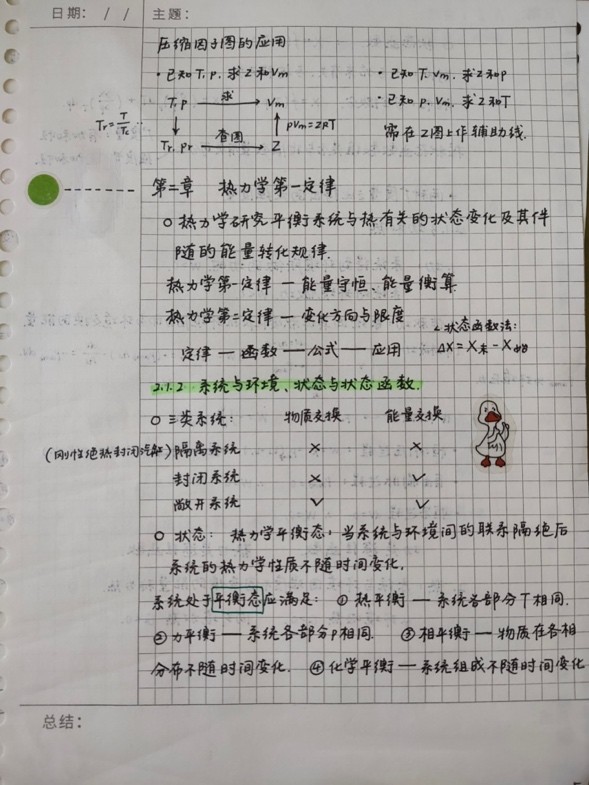 日期: / / 主题:
压缩因子图的应用
·已知T, p, 求Z和Vm ·已知T, Vm, 求Z和p
T, p 求 Vm ·已知p, Vm, 求Z和T
Tr=T/Tc pVm=ZRT
Tr, Pr 查图 Z 需在Z图上作辅助线.
第二章 热力学第一定律
○热力学研究平衡系统与热有关的状态变化及其伴
随的能量转化规律.
热力学第一定律 — 能量守恒、能量衡算
热力学第二定律 — 变化方向与限度
状态函数法:
定律 — 函数 — 公式 — 应用 ΔX=X末-X始
2.1.2 系统与环境、状态与状态函数.
○ 三类系统: 物质交换 能量交换
(刚性绝热封闭) 隔离系统 × ×
封闭系统 × ✓
敞开系统 ✓ ✓
○ 状态: 热力学平衡态: 当系统与环境间的联系隔绝后
系统的热力学性质不随时间变化.
系统处于平衡态应满足: ① 热平衡 — 系统各部分T相同.
②力平衡 — 系统各部分p相同. ③相平衡 — 物质在各相
分布不随时间变化. ④化学平衡 — 系统组成不随时间变化
总结: